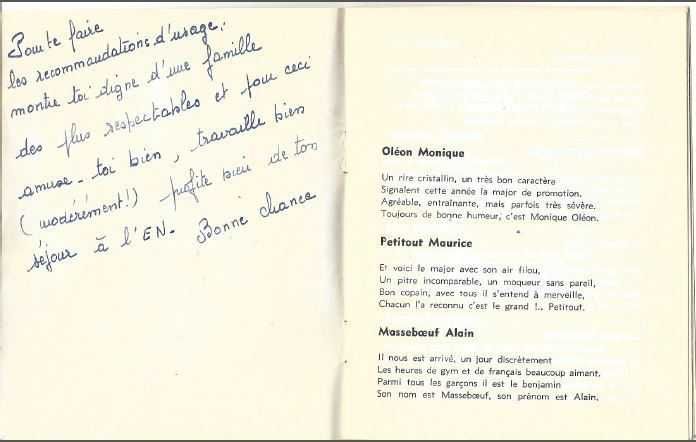 Pour te faire
les recommandations d'usage.
montre toi digne d'une famille
des plus respectables et pour ceci
amuse-toi bien, travaille bien
(modérément!) profite bien de ton
séjour à l'EN- Bonne chance
Oléon Monique
Un rire cristallin, un très bon caractère
Signalent cette année la major de promotion.
Agréable, entraînante, mais parfois très sévère.
Toujours de bonne humeur, c'est Monique Oléon.
Petitout Maurice
Et voici le major avec son air filou,
Un pitre incomparable, un moqueur sans pareil,
Bon copain, avec tous il s'entend à merveille,
Chacun l'a reconnu c'est le grand !.. Petitout.
Massebœuf Alain
Il nous est arrivé, un jour discrètement
Les heures de gym et de français beaucoup aiment.
Parmi tous les garçons il est le benjamin
Son nom est Massebœuf, son prénom est Alain.